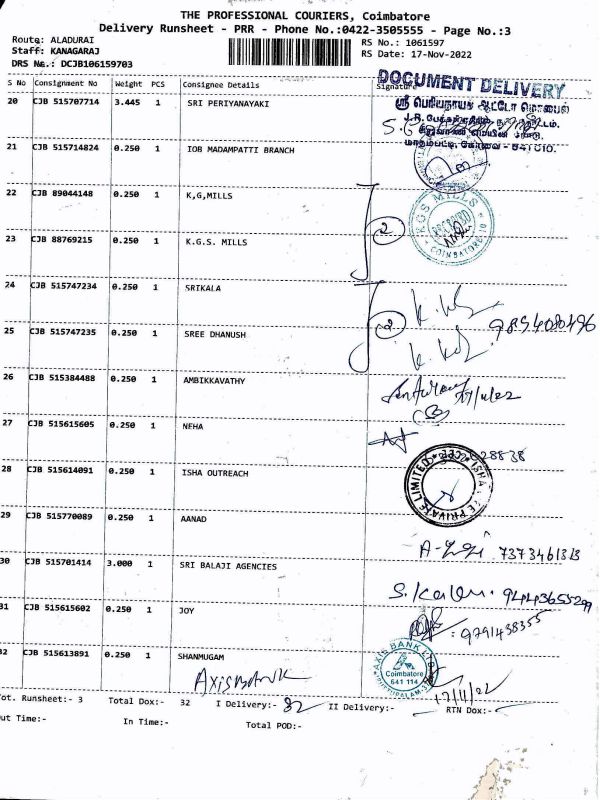 THE PROFESSIONAL COURIERS, Coimbatore
Delivery Runsheet - PRR - Phone No.:0422-3505555 - Page No.:3
Route: ALADURAI
RS No.: 1061597
Staff: KANAGARAJ
RS Date: 17-Nov-2022
DRS No.: DCJB106159703
S No Consignment No Weight PCS Consignee Details Signature
DOCUMENT DELIVERY
20 CJB 515707714 3.445 1 SRI PERIYANAYAKI
ஸ்ரீ பெரியநாயகி ஆட்டோ மொபைல்
21 CJB 515714824 0.250 1 IOB MADAMPATTI BRANCH
22 CJB 89044148 0.250 1 K,G,MILLS
KGS MILLS
RECEIVED
COIMBATORE
2
23 CJB 88769215 0.250 1 K.G.S. MILLS
24 CJB 515747234 0.250 1 SRIKALA
2
9894080496
25 CJB 515747235 0.250 1 SREE DHANUSH
26 CJB 515384488 0.250 1 AMBIKKAVATHY
27 CJB 515615605 0.250 1 NEHA
28 CJB 515614091 0.250 1 ISHA OUTREACH
PRIVATE LIMITED
29 CJB 515770089 0.250 1 AANAD
7373461313
30 CJB 515701414 3.000 1 SRI BALAJI AGENCIES
9444365529
31 CJB 515615602 0.250 1 JOY
9791438355
32 CJB 515613891 0.250 1 SHANMUGAM
Axis Bank
AXIS BANK LTD
Coimbatore
641 114
17/11/22
Tot. Runsheet:- 3 Total Dox:- 32 I Delivery:- 32 II Delivery:- RTN Dox:-
Out Time:- In Time:- Total POD:-